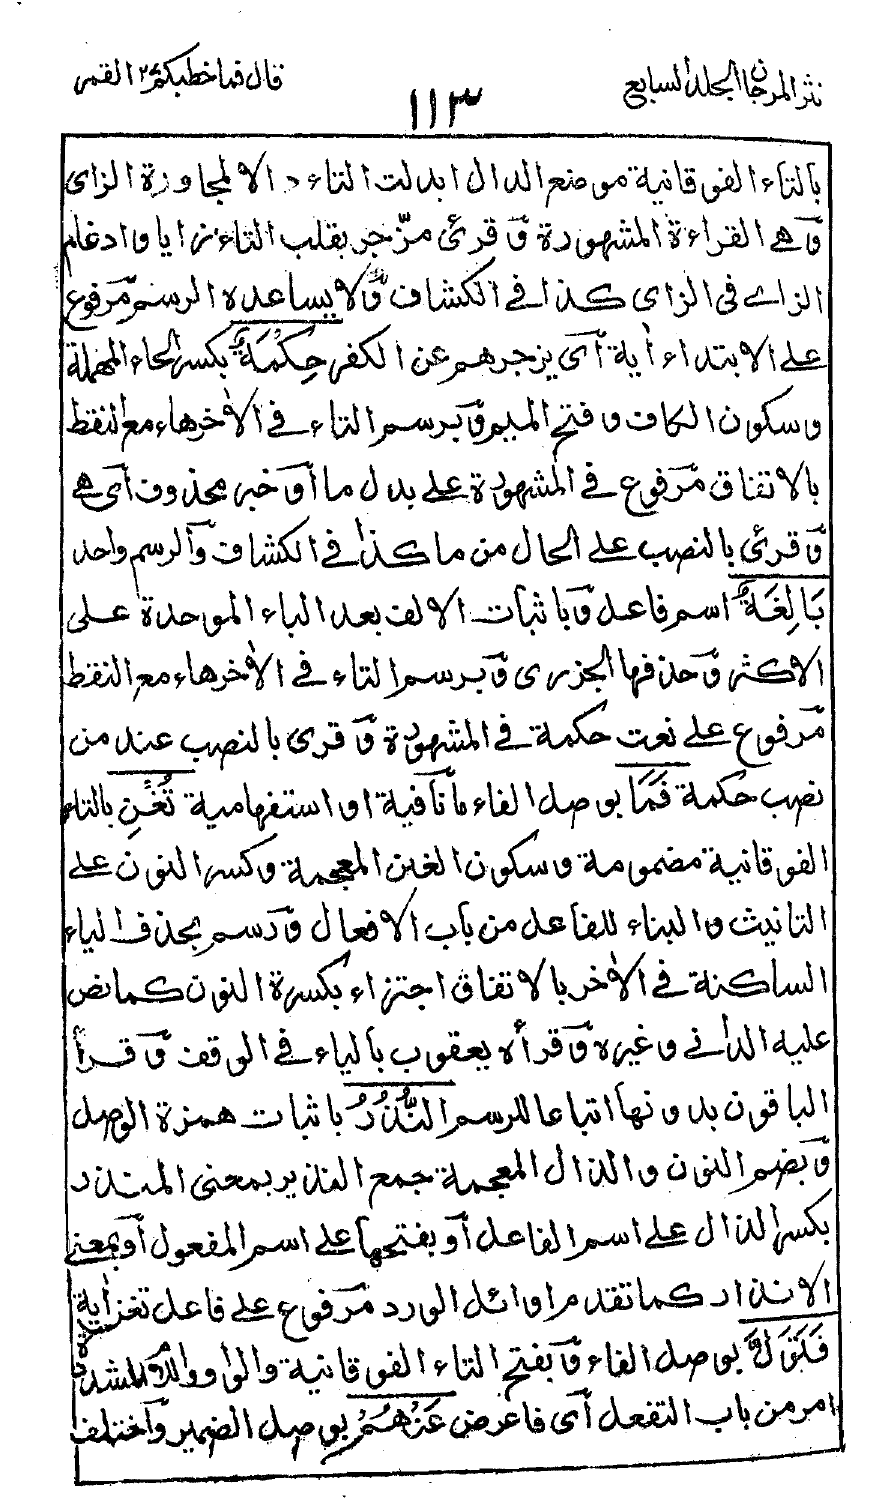 نثر المرجان الجلد السابع
١١٣
قال فما خطبكم ٢٧ القمر
بالتاء الفوقانية موضع الدال ابدلت التاء دالا لمجاورة الزاى
وهى القراءة المشهورة وقرئ مزّجر بقلب التاء زايا وادغام
الزاے فى الزاى كذا فى الكشاف ولا يساعده الرسم مرفوع
على الابتداء اٰية اى يزجرهم عن الكفر حِكْمَةٌ بكسر الحاء المهملة
وسكون الكاف وفتح الميم وبرسم التاء فى الاٰخر هاء مع النقط
بالاتفاق مرفوع فى المشهورة على بدل ما او خبر محذوف اى هى
وقرئ بالنصب على الحال من ما كذا فى الكشاف والرسم واحد
بَالِغَةٌ اسم فاعل وباثبات الالف بعد الباء الموحدة على
الاكثر وحذفها الجزرى وبرسم التاء فى الاٰخر هاء مع النقط
مرفوع على نعت حكمة فى المشهورة وقرى بالنصب عند من
نصب حكمة فَمَا بوصل الفاء ما نافية او استفهامية تُغْنِ بالتاء
الفوقانية مضمومة وسكون الغين المعجمة وكسر النون على
التانيث والبناء للفاعل من باب الافعال ورسم بحذف الياء
الساكنة فى الاٰخر بالاتفاق اجتزاء بكسرة النون كما نص
عليه الدانى وغيره وقرأه يعقوب بالياء فى الوقف وقرأ
الباقون بدونها اتباعا للرسم النُّذُرُ باثبات همزة الوصل
وبضم النون والذال المعجمة جمع النذير بمعنى المنذر
بكسر الذال على اسم الفاعل او بفتحها على اسم المفعول او بمعنى
الانذار كما تقدم اوائل الورد مرفوع على فاعل تغن اٰية
فَتَوَلَّ بوصل الفاء وبفتح التاء الفوقانية والواو واللام المشددة
امر من باب التفعل اى فاعرض عَنْهُمْ بوصل الضمير واختلف